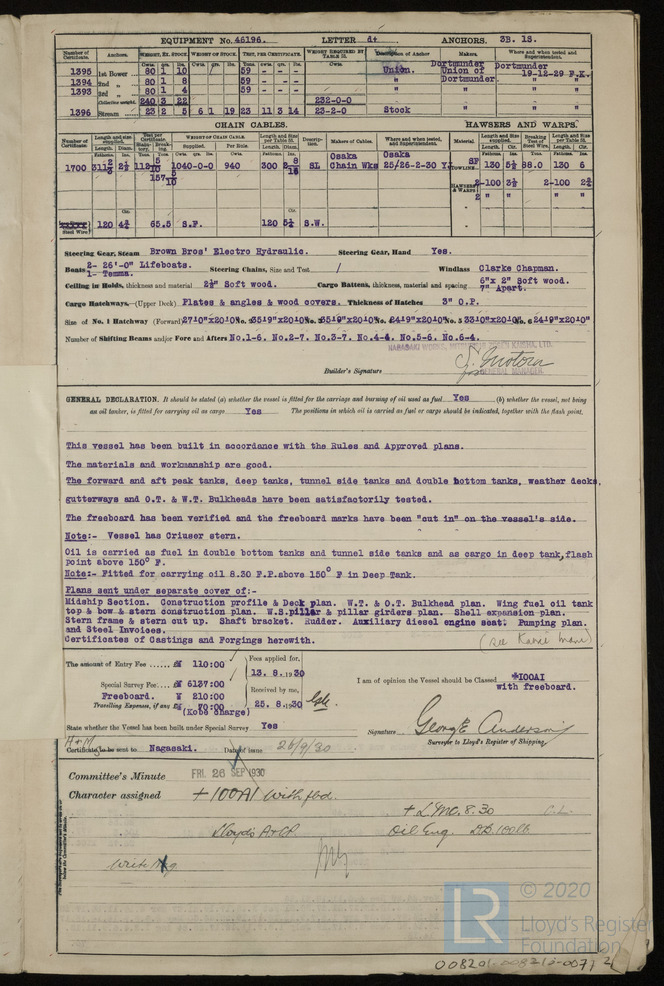 EQUIPMENT No. 46196. LETTER d+ ANCHORS. 3B. 1S.
Number of Certificate. Anchors. WEIGHT, EX. STOCK. WEIGHT OF STOCK. TEST, PER CERTIFICATE. WEIGHT REQUIRED BY TABLE 31. Description of Anchor Makers. Where and when tested and Superintendent.
1395 1st Bower 80 1 10 59 - - - Union. Dortmunder Union of Dortmunder. Dortmunder 19-12-29 F.K.
1394 2nd " 80 1 8 59 - - - " " " "
1393 3rd " 80 1 4 59 - - - " " " "
Collective weight. 240 3 22 232-0-0
1396 Stream 23 2 5 6 1 19 23 11 3 14 23-2-0 Stock " " "
CHAIN CABLES. HAWSERS AND WARPS.
Number of Certificate. Length and size supplied. Test per Certificate. WEIGHT OF CHAIN CABLE Length and Size per Table 31. Description. Makers of Cables. Where and when tested, and Superintendent. Material. Length and Size supplied. Breaking Test of Steel Wire. Length and Size per Table 31.
Length. Diam. Supplied. Per Rule. Length. Diam. Length. Cir. Length. Cir.
1040-0-0 940 300 SL Osaka Chain Wks Osaka 25/26-2-30 130 5½ 88.0 130 6
2-100 3½ " 2-100 2¾
120 4¾ 65.5 S.F. 120 5½ S.W.
Steering Gear, Steam Brown Bros' Electro Hydraulic. Steering Gear, Hand Yes.
Boats 2- 26'-0" Lifeboats. 1- Temma. Steering Chains, Size and Test / Windlass Clarke Chapman.
Ceiling in Holds, thickness and material 2½" Soft wood. Cargo Battens, thickness, material and spacing 6"x 2" Soft wood. 7" Apart.
Cargo Hatchways.—(Upper Deck) Plates & angles & wood covers. Thickness of Hatches 3" O.P.
Size of No. 1 Hatchway (Forward) 27'10"x20'10" No. 2 35'9"x20'10" No. 3 35'9"x20'10" No. 4 24'9"x20'10" No. 5 33'0"x20'10" No. 6 24'9"x20'10"
Number of Shifting Beams and/or Fore and Afters No.1-6. No.2-7. No.3-7. No.4-4. No.5-6. No.6-4.
NAGASAKI WORKS, MITSUBISHI ZOSEN KAISHA, LTD.
Builder's Signature
GENERAL MANAGER.
GENERAL DECLARATION. It should be stated (a) whether the vessel is fitted for the carriage and burning of oil used as fuel Yes (b) whether the vessel, not being
an oil tanker, is fitted for carrying oil as cargo Yes The positions in which oil is carried as fuel or cargo should be indicated, together with the flash point.
This vessel has been built in accordance with the Rules and Approved plans.
The materials and workmanship are good.
The forward and aft peak tanks, deep tanks, tunnel side tanks and double bottom tanks, weather decks,
gutterways and O.T. & W.T. Bulkheads have been satisfactorily tested.
The freeboard has been verified and the freeboard marks have been "cut in" on the vessel's side.
Note:- Vessel has Criuser stern.
Oil is carried as fuel in double bottom tanks and tunnel side tanks and as cargo in deep tank, flash
point above 150° F.
Note:- Fitted for carrying oil 8.30 F.P.above 150° F in Deep Tank.
Plans sent under separate cover of:-
Midship Section. Construction profile & Deck plan. W.T. & O.T. Bulkhead plan. Wing fuel oil tank
top & bow & stern construction plan. W.S.pillar & pillar girders plan. Shell expansion plan.
Stern frame & stern cut up. Shaft bracket. Rudder. Auxiliary diesel engine seat. Pumping plan.
and Steel Invoices.
Certificates of Castings and Forgings herewith.
The amount of Entry Fee ...... ¥ 110:00 Fees applied for,
13. 8. 1930
Special Survey Fee.... ¥ 6137:00
Freeboard. ¥ 210:00 Received by me,
Travelling Expenses, if any ¥ 70:00 25. 8. 1930
(Kobe charge)
I am of opinion the Vessel should be Classed *100A1
with freeboard.
State whether the Vessel has been built under Special Survey Yes
Signature George Anderson
Surveyor to Lloyd's Register of Shipping.
Certificate to be sent to Nagasaki. Date of issue 26/9/30
Committee's Minute FRI. 26 SEP 1930
Character assigned +100A1 with fbd.
+ LMC. 8.30 C.L.
Lloyds A & CP. Oil Eng. D.B. 100lb
© 2020
LR
Lloyd's Register
Foundation
008201-008212-0077 2/2